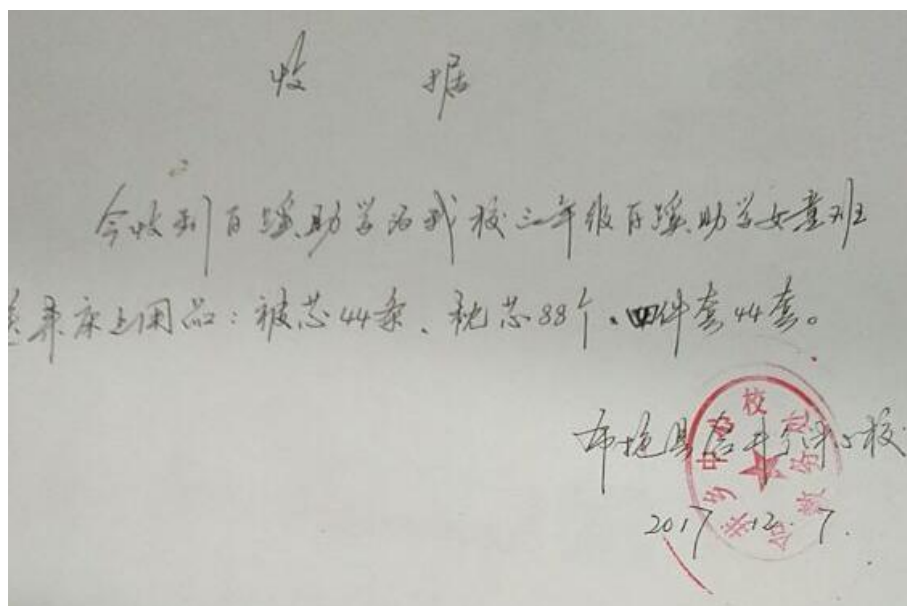 收 据
今收到百蹊助学为我校三年级百蹊助学女童班
来床上用品：被芯44条、枕芯88个、四件套44套。
布拖县乡中心校
2017.12.7.
中心校
教务处